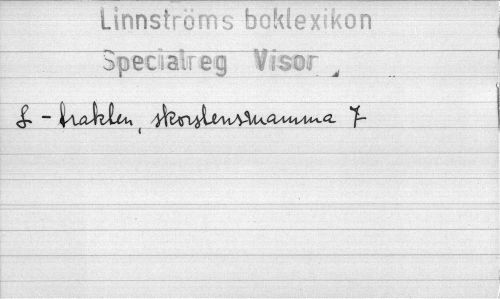 Linnströms boklexikon
Specialreg Visor
L - trakten, skorstensmamma 7